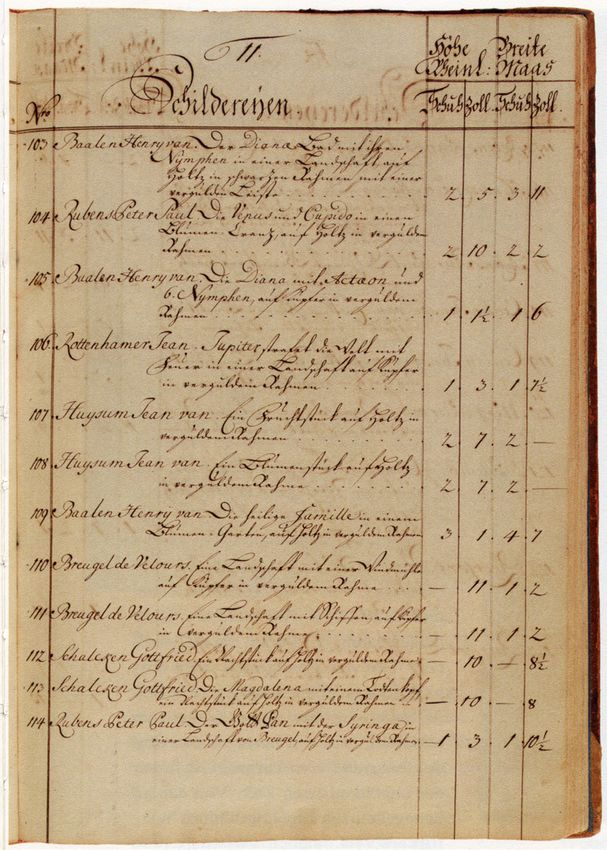 11.
Höhe Breite
Rheinl: Maas
Nro Schildereÿen Schuh Zoll. Schuh Zoll.
103 Baalen Henry van. Der Diana Baad mit ihren
Nÿmphen in einer Landschaft auf
Holtz in schwarzen Rahmen mit einer
vergulden Leiste . . . 2. 5. 3. 11
104 Rubens Peter Paul. Die Venus und Cupido in einen
Blumen-Crantz, auf Holtz in vergülden
Rahmen . . . 2. 10. 2. 2
105 Baalen Henry van. Die Diana mit Actæon und
6. Nÿmphen, auf Kupfer in vergüldem
Rahmen . . . 1. 1½. 1. 6
106 Rottenhamer Jean. Jupiter strafet die Welt mit
Feuer in einer Landschaft auf Kupfer
in vergüldem Rahmen . . . 1. 3. 1. 7½
107 Huysum Jean van. Ein Fruchtstück auf Holtz in
vergüldem Rahmen . . . 2. 7. 2. —
108 Huysum Jean van. Ein Blumenstück auf Holtz
in vergüldem Rahme . . . 2. 7. 2. —
109 Baalen Henry van. Die heilige Famille in einem
Blumen-Garten, auf Holtz in vergüldem Rahmen 3. 1. 4. 7
110 Breugel de Velours. Eine Landschaft mit einer Windmühle
auf Kupfer in vergüldem Rahme . . . — 11. 1. 2
111 Breugel de Velours. Eine Landschaft mit Schiffen auf Kupfer
in vergüldem Rahme . . . — 11. 1. 2
112 Schalcken Gottfried. Ein Nachtstück auf Holtz in vergüldem Rahme — 10. — 8½
113 Schalcken Gottfried. Die Magdalena mit einem Todtenkopf,
ein Nachtstück auf Holtz in vergüldem Rahmen — 10. — 8
114 Rubens Peter Paul. Der Gott Pan mit der Syringa in
einer Landschaft von Breugel, auf Holtz in vergüldem Rahm. — 1. 3. 1. 10½